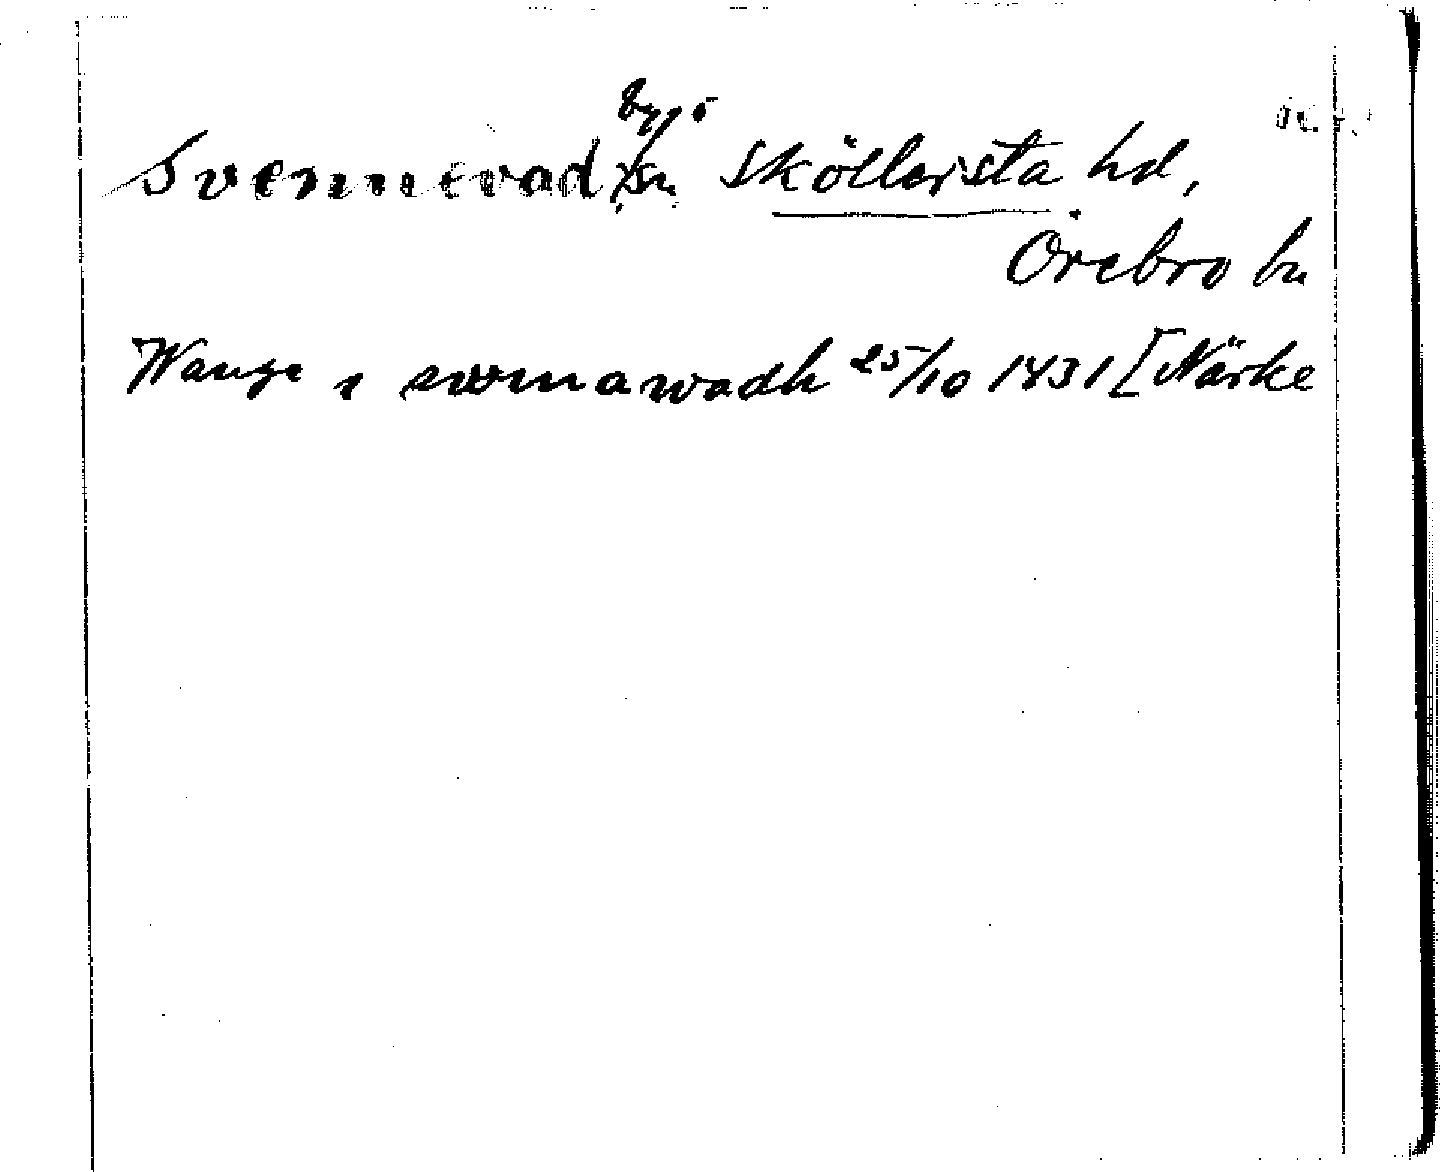 bygd
Svennevad sn Sköllersta hd,
Örebro ln
Wange i swenawadh 25/10 1431 [Närke